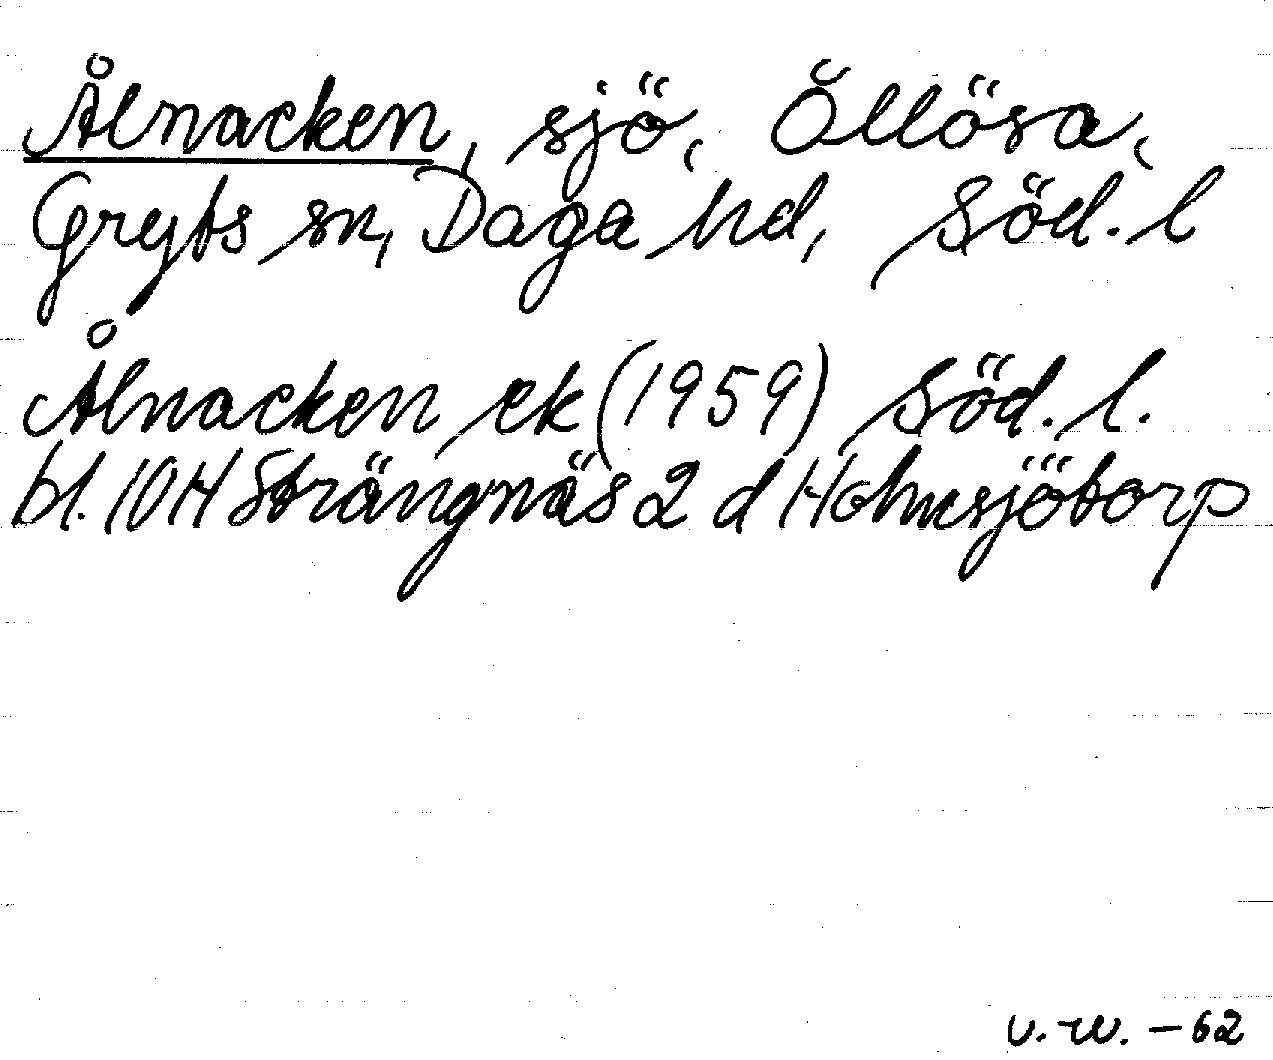 Ålnacken, sjö, Öllösa,
Gryts sn, Daga hd, Söd. l
Ålnacken ek (1959) Söd. l.
bl. 10H Strängnäs 2 d Holmsjötorp
v. W. - 62